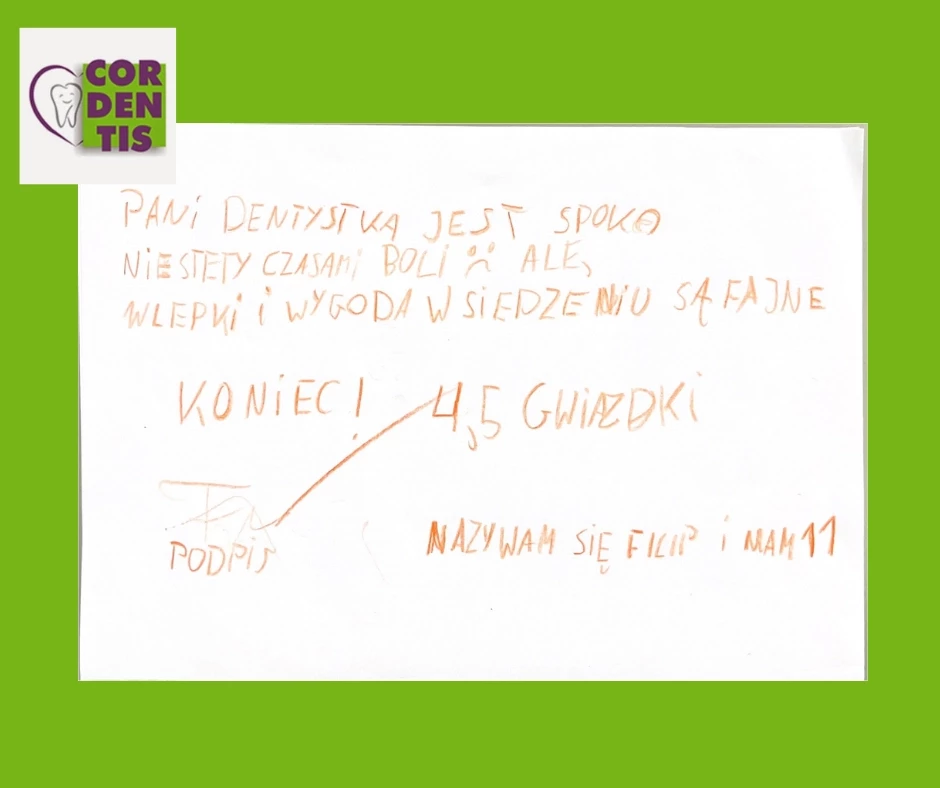 COR
DEN
TIS
PANi DENTYSTKA JEST SPOKO
NiESTETY CZASAMi BOLi ALE,
WLEPKi i WYGODA W SIEDZENIU SĄ FAJNE
KONiEC! 4,5 GWiAZDKi
PODPiS
NAZYWAM SiĘ FILIP i MAM 11